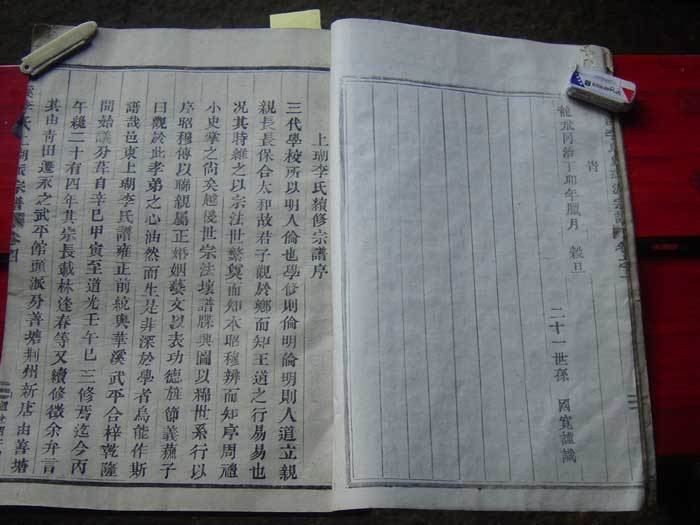 旹
龍飛同治丁卯年臘月 穀旦
二十一世孫 國寬謹識
上瑚李氏續修宗譜序
三代學校所以明人倫也學修則倫明倫明則人道立親
親長長保合太和故君子觀於鄉而知王道之行易易也
況其時維之以宗法世繫奠而知本昭穆辨而知序周禮
小史掌之尚矣越後世宗法壞譜牒興圖以稱世系行以
序昭穆傳以聯親屬正婚姻藝文以表功德旌節義孫子
曰觀於此孝弟之心油然而生是非深於學者烏能作斯
譜哉邑東上瑚李氏譜雍正前統與華溪武平合梓乾隆
間始議分葺自辛巳甲寅至道光壬午已三修焉迄今丙
午積二十有四年其宗長載林逢春等又續修徵余弁言
其由青田遷永之武平館頭派分善塘荆州新店由善塘
李氏上瑚派宗譜 卷四